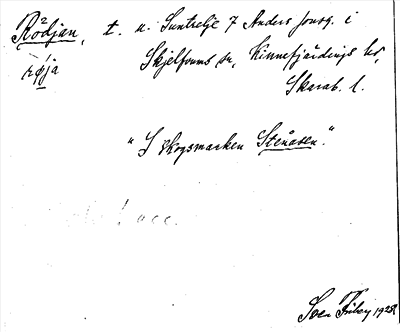 Rödjan, t. u. Suntrelje 7 Anders jonsg. i
röja
Skjelfvums sn, Kinnefjärdings hd,
Skarab. l.
"I skogsmarken Stenåsen."
acc.
Sven Friberg 1928